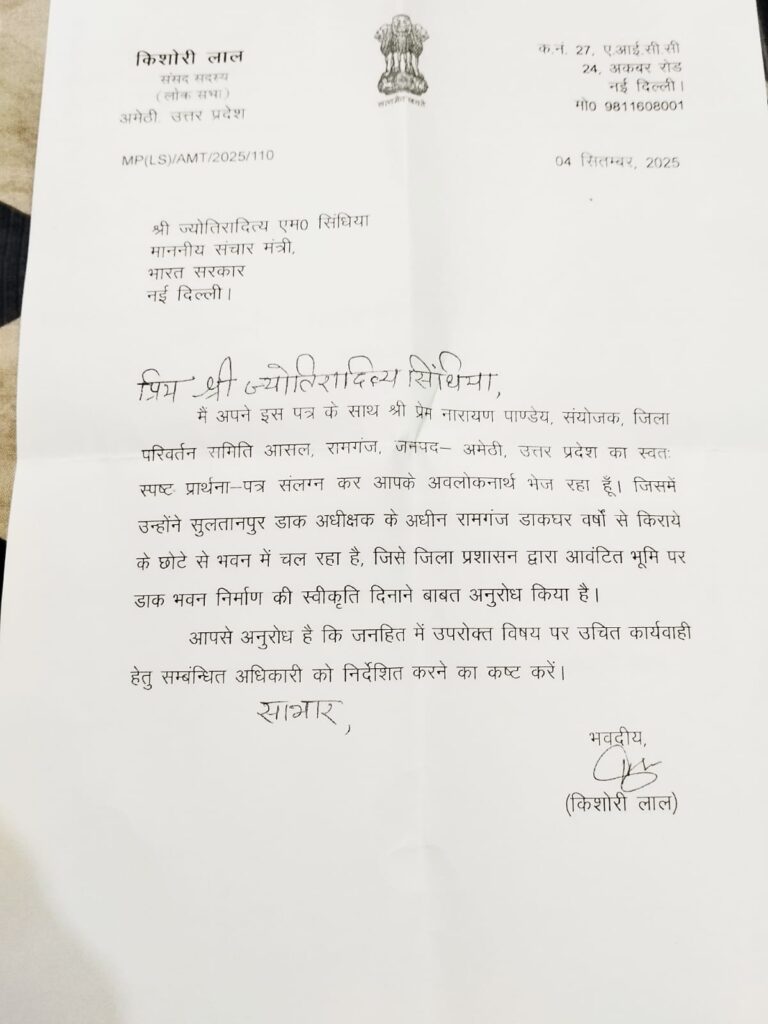 किशोरी लाल
संसद सदस्य
(लोक सभा)
अमेठी, उत्तर प्रदेश
MP(LS)/AMT/2025/110
सत्यमेव जयते
क.नं. 27, ए.आई.सी.सी
24, अकबर रोड
नई दिल्ली।
मो0 9811608001
04 सितम्बर, 2025
श्री ज्योतिरादित्य एम0 सिंधिया
माननीय संचार मंत्री,
भारत सरकार
नई दिल्ली।
प्रिय श्री ज्योतिरादित्य सिंधिया,
मैं अपने इस पत्र के साथ श्री प्रेम नारायण पाण्डेय, संयोजक, जिला
परिवर्तन समिति आसल, रामगंज, जनपद– अमेठी, उत्तर प्रदेश का स्वतः
स्पष्ट प्रार्थना–पत्र संलग्न कर आपके अवलोकनार्थ भेज रहा हूँ। जिसमें
उन्होंने सुलतानपुर डाक अधीक्षक के अधीन रामगंज डाकघर वर्षों से किराये
के छोटे से भवन में चल रहा है, जिसे जिला प्रशासन द्वारा आवंटित भूमि पर
डाक भवन निर्माण की स्वीकृति दिनाने बाबत अनुरोध किया है।
आपसे अनुरोध है कि जनहित में उपरोक्त विषय पर उचित कार्यवाही
हेतु सम्बंन्धित अधिकारी को निर्देशित करने का कष्ट करें।
साभार,
भवदीय,
(किशोरी लाल)